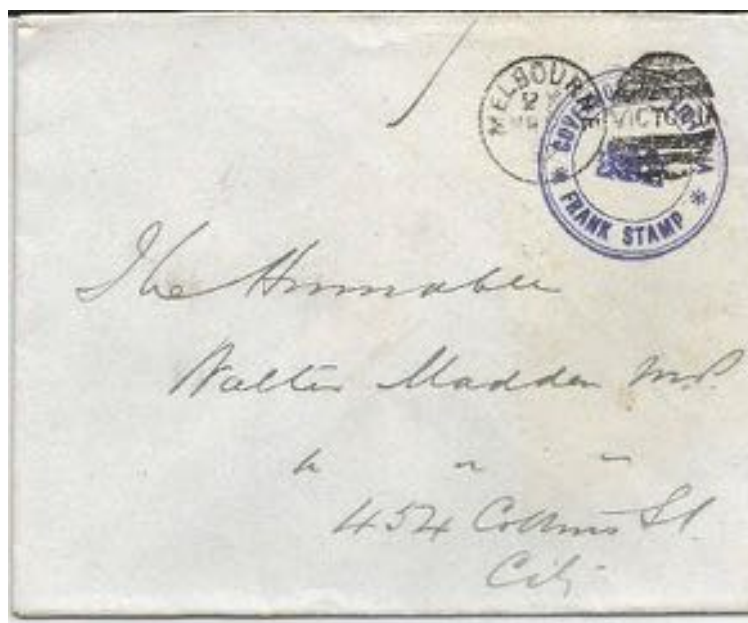 MELBOURNE
12
VICTORIA
FRANK STAMP
The Honorable
Walter Madden M.P.
454 Collins St
City